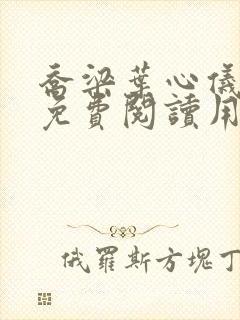 喬梁葉心儀
免費閱讀用
俄羅斯方塊丁